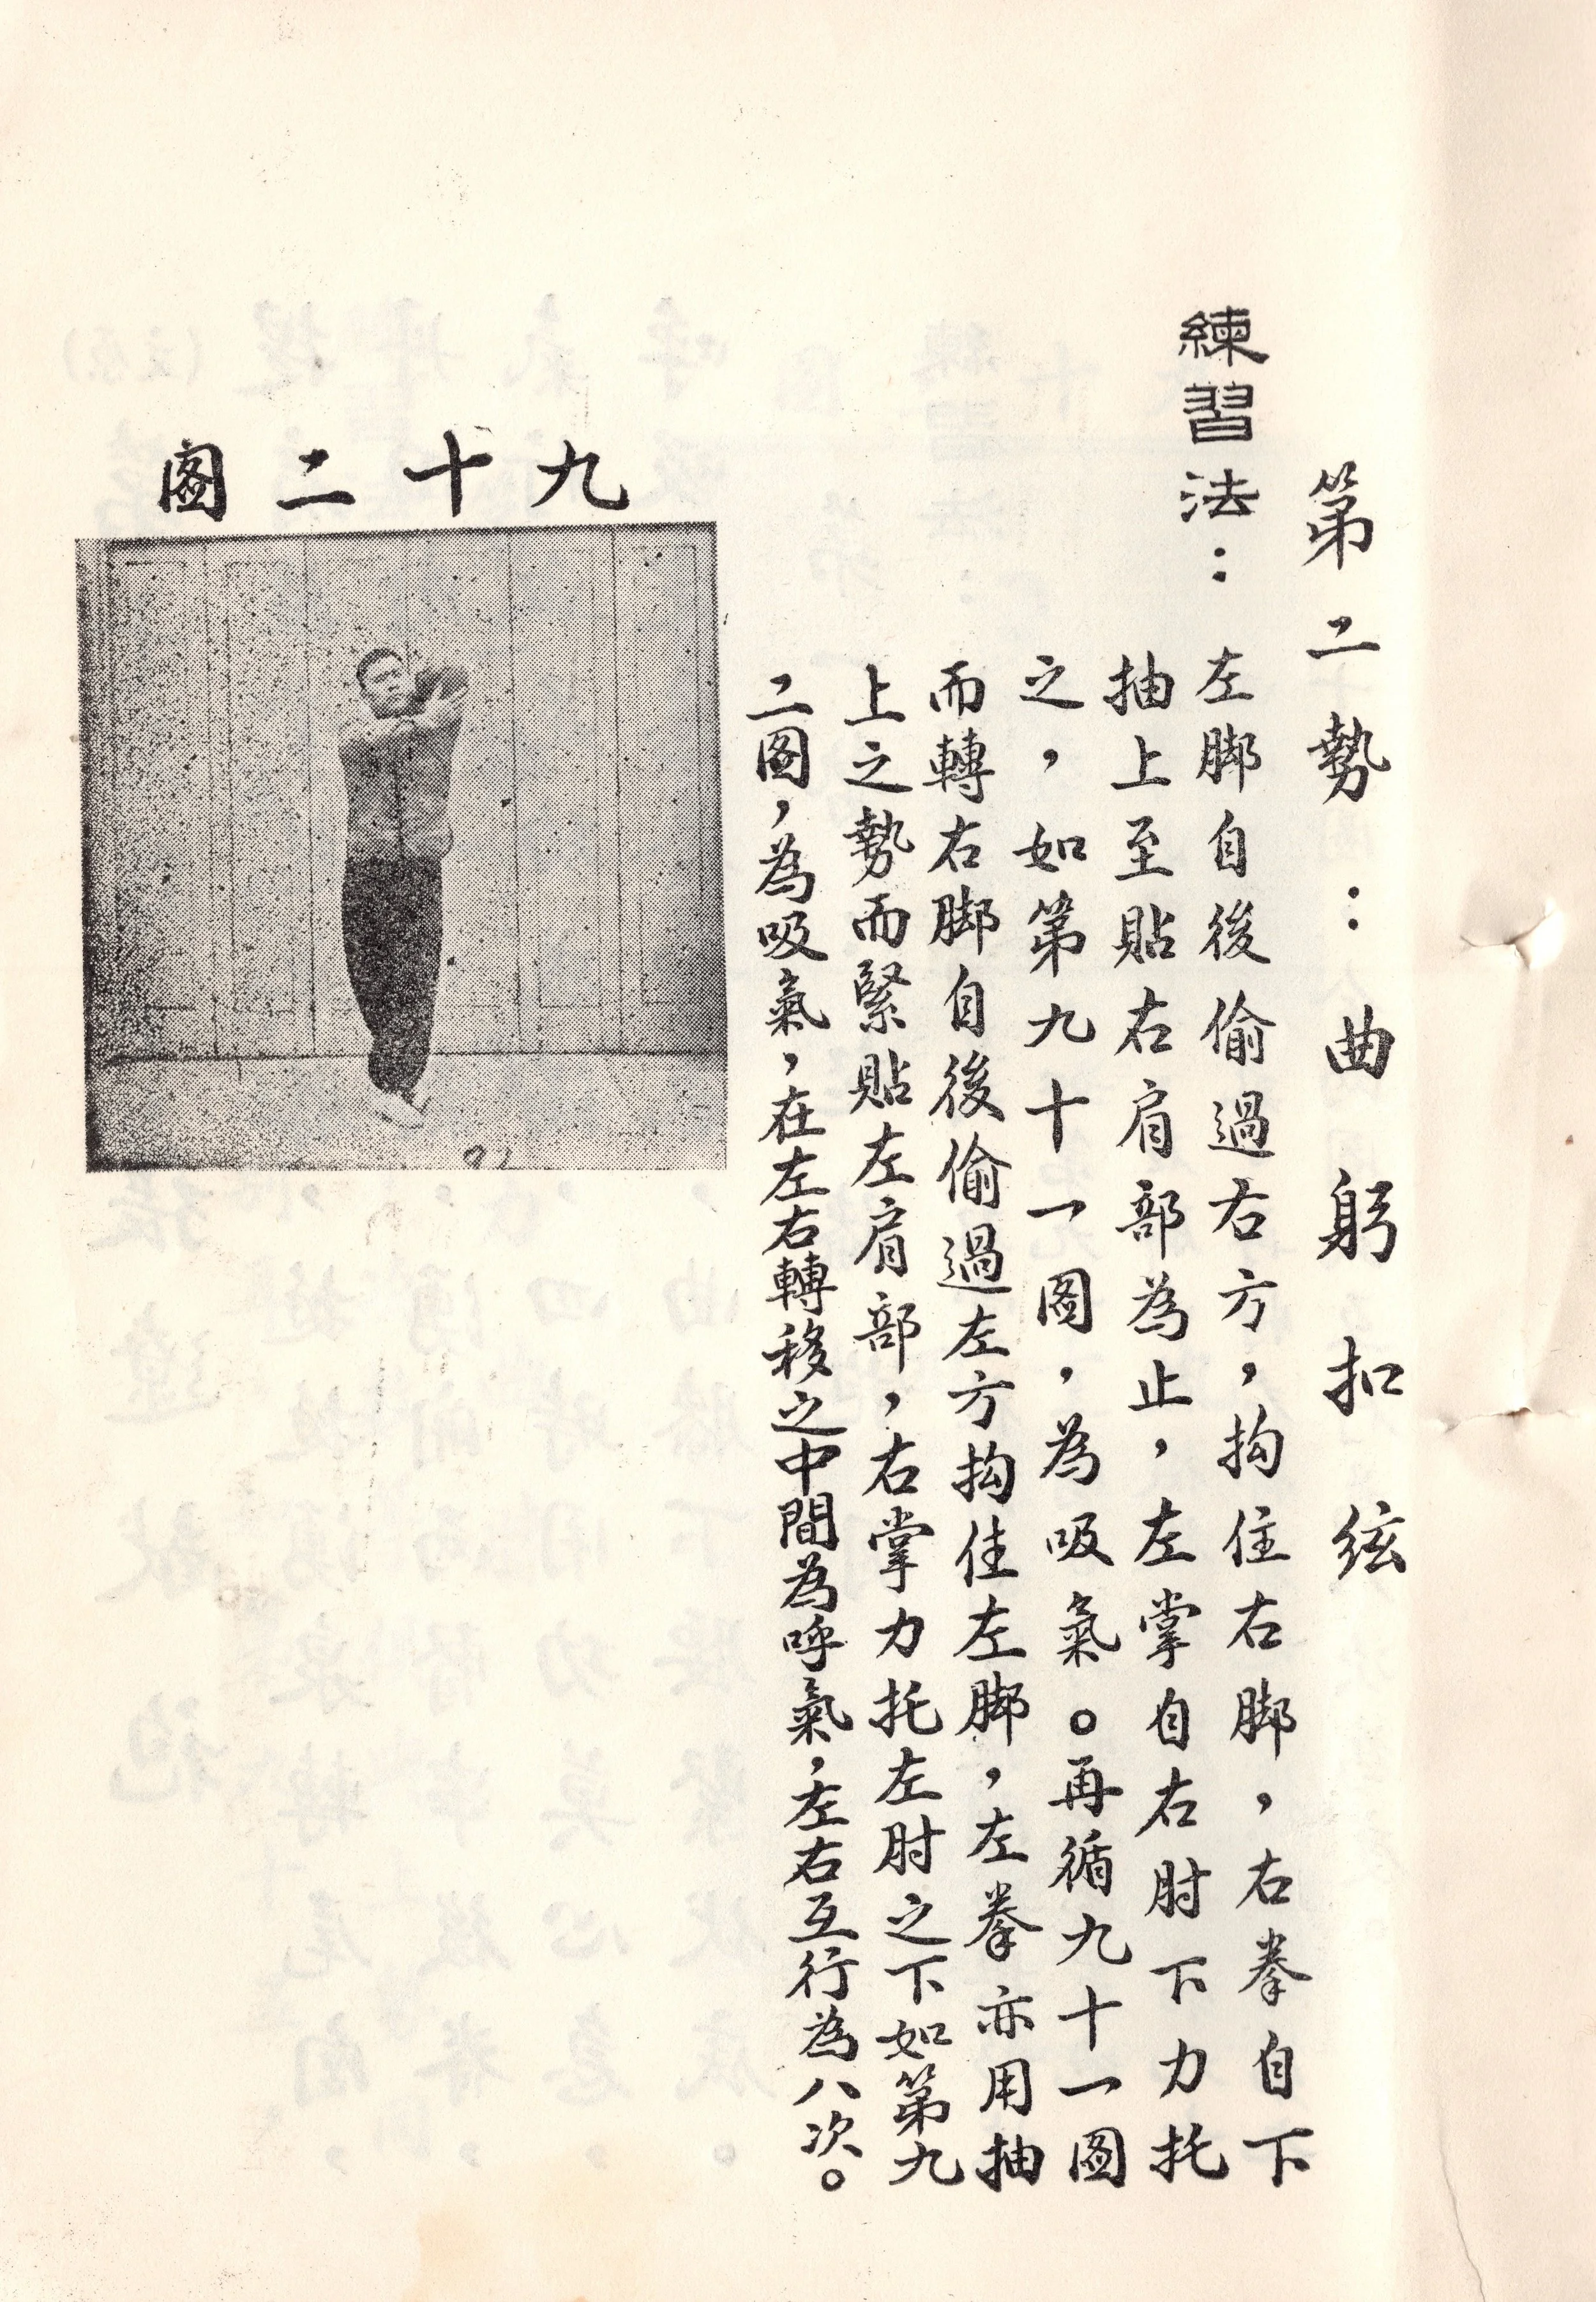 第二勢：曲躬扣弦
練習法：左脚自後偷過右方，拘住右脚，右拳自下
抽上至貼右肩部為止，左掌自右肘下力托
之，如第九十一圖，為吸氣。再循九十一圖
而轉右脚自後偷過左方拘住左脚，左拳亦用抽
上之勢而緊貼左肩部，右掌力托左肘之下如第九
二圖，為吸氣，在左右轉移之中間為呼氣，左右互行為八次。
九十二圖